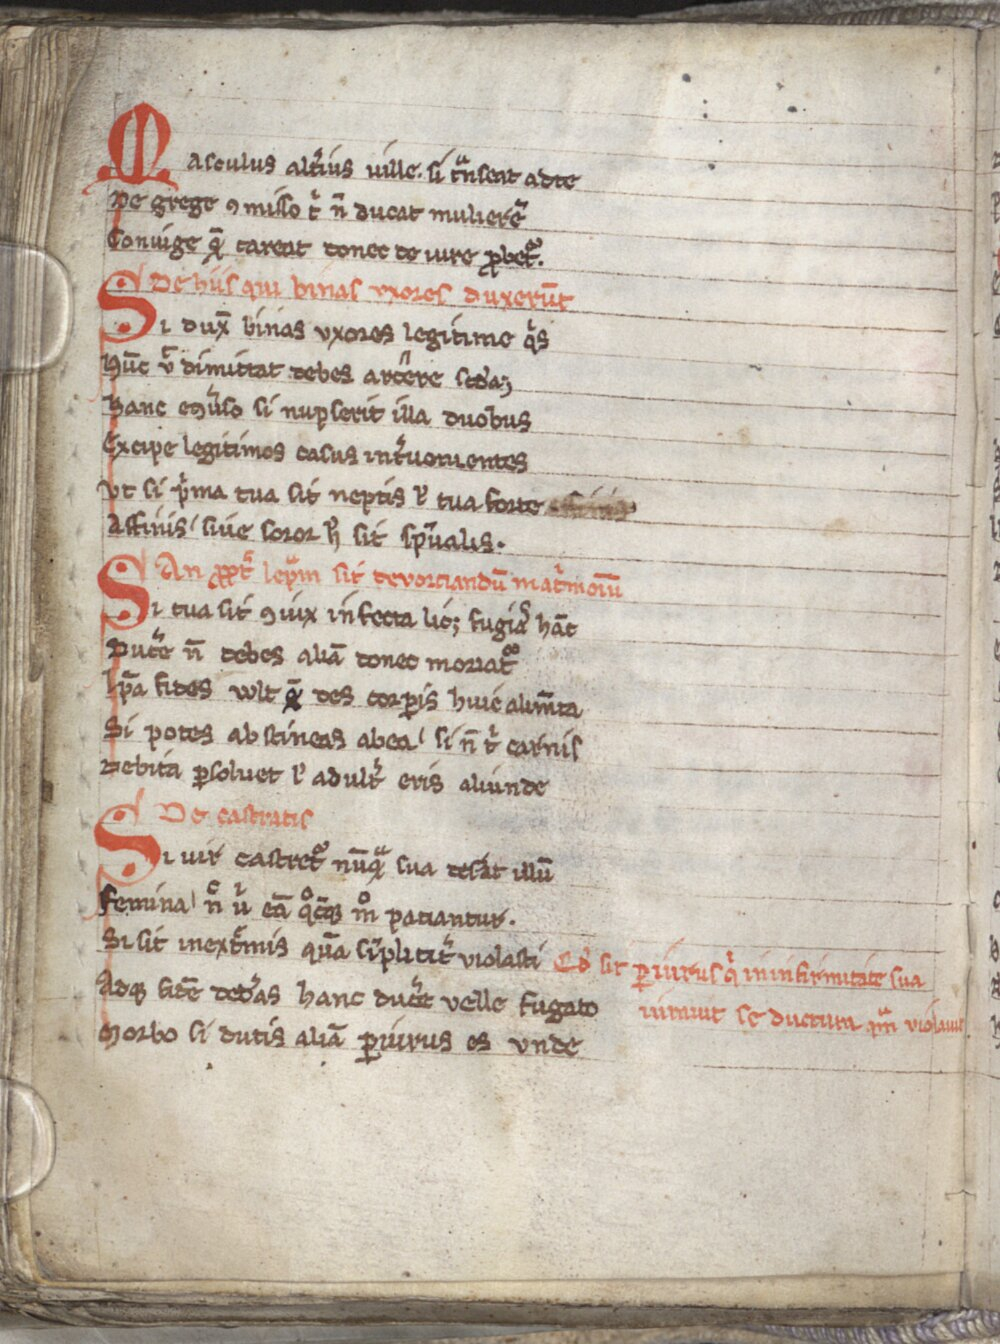 Masculus alt'ius ville. si t̃nseat adte
De grege ꝯmisso t͛ n̄ ducat mulierẽ
Coniuge q̄ careat donec de iure ꝓbet᷑.
De hiis qui binas uxores duxerūt
Si dux̄ binas uxores legitime q̾s
Hūc ỻ dimittat debes arcere scđaꝫ
hanc eꝯũso si nupserit illa duobus
Excipe legitimos casus int͛uenientes
Ut si p̾ma tua sit neptis ł tua forte
Affinis siue soror ł sit sp̃ualis.
An ꝓpt̃ lep̃m sit deuorciandū mat͛moiū
Si tua sit ꝯiux infecta licꝫ fugias hāc
Duc̃e n̄ debes aliā donec moriat᷑
Ip̄a fides uult q̄ des corꝑis huic alim̄ta
Si potes abstineas abea si n̄ t͛ carnis
Debita ꝑsoluet ł adult͛ eris aliunde
De castratis
Si uir castret᷑ nūq̃ sua des͛at illū
Femina n̄ u͛ eā q̊cūqꝫ m̊ paciantur.
Si sit inext̃mis quā sīplicit͛ uiolasti
Adqꝫ fidē ded̾as hanc duc̃e uelle fugato
Morbo si ducis aliā ꝑiurus es unde
sit ꝑiurus q̾ in infirmitate sua
iurauit se ducturā qm̄ uiolauit